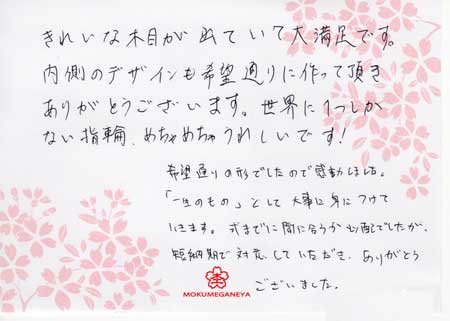 きれいな木目が出ていて大満足です。
内側のデザインも希望通りに作って頂き
ありがとうございます。世界に1つしか
ない指輪、めちゃめちゃうれしいです!
希望通りの形でしたので感動しました。
「一生のもの」として大事に身につけて
いきます。式までに間に合うか心配でしたが、
短納期で対応していただき、ありがとう
ございました。
MOKUMEGANEYA